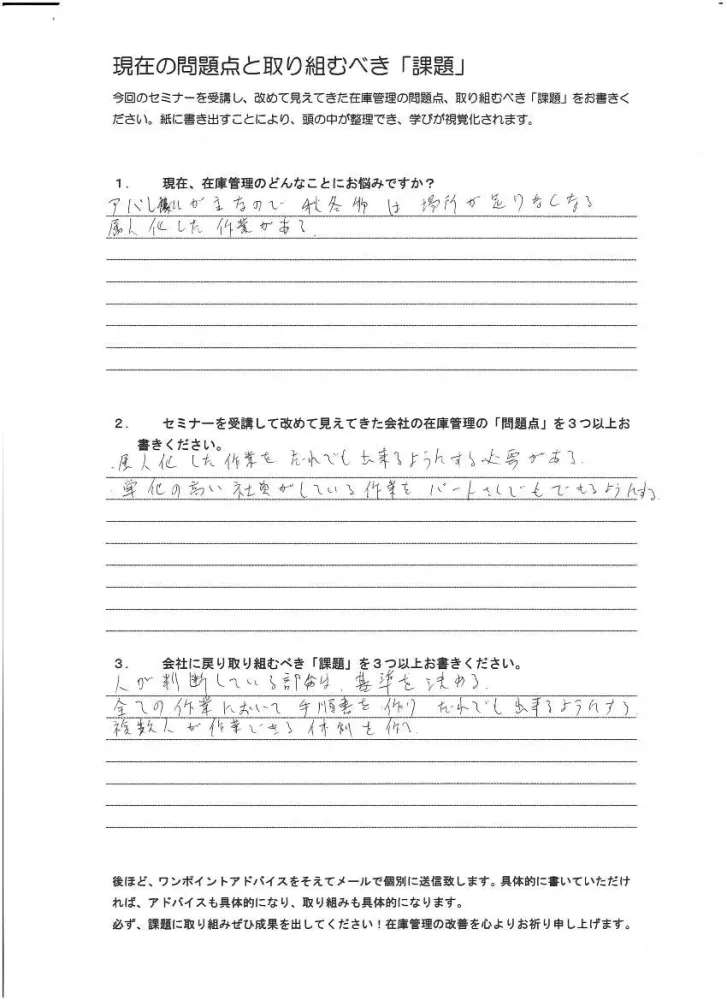 現在の問題点と取り組むべき「課題」
今回のセミナーを受講し、改めて見えてきた在庫管理の問題点、取り組むべき「課題」をお書きく
ださい。紙に書き出すことにより、頭の中が整理でき、学びが視覚化されます。
１．　現在、在庫管理のどんなことにお悩みですか？
アパレルが主なので 秋冬物 は 場所が足りなくなる
属人化した作業がある
２．　セミナーを受講して改めて見えてきた会社の在庫管理の「問題点」を３つ以上お
書きください。
・属人化した作業をだれでも出来るようにする必要がある。
・単価の高い社員がしている作業をパートさんでもできるようにする
３．　会社に戻り取り組むべき「課題」を３つ以上お書きください。
人が判断している部分は、基準を決める。
全ての作業において手順書を作りだれでも出来るようにする
複数人が作業できる体制を作る
後ほど、ワンポイントアドバイスをそえてメールで個別に送信致します。具体的に書いていただけ
れば、アドバイスも具体的になり、取り組みも具体的になります。
必ず、課題に取り組みぜひ成果を出してください！在庫管理の改善を心よりお祈り申し上げます。